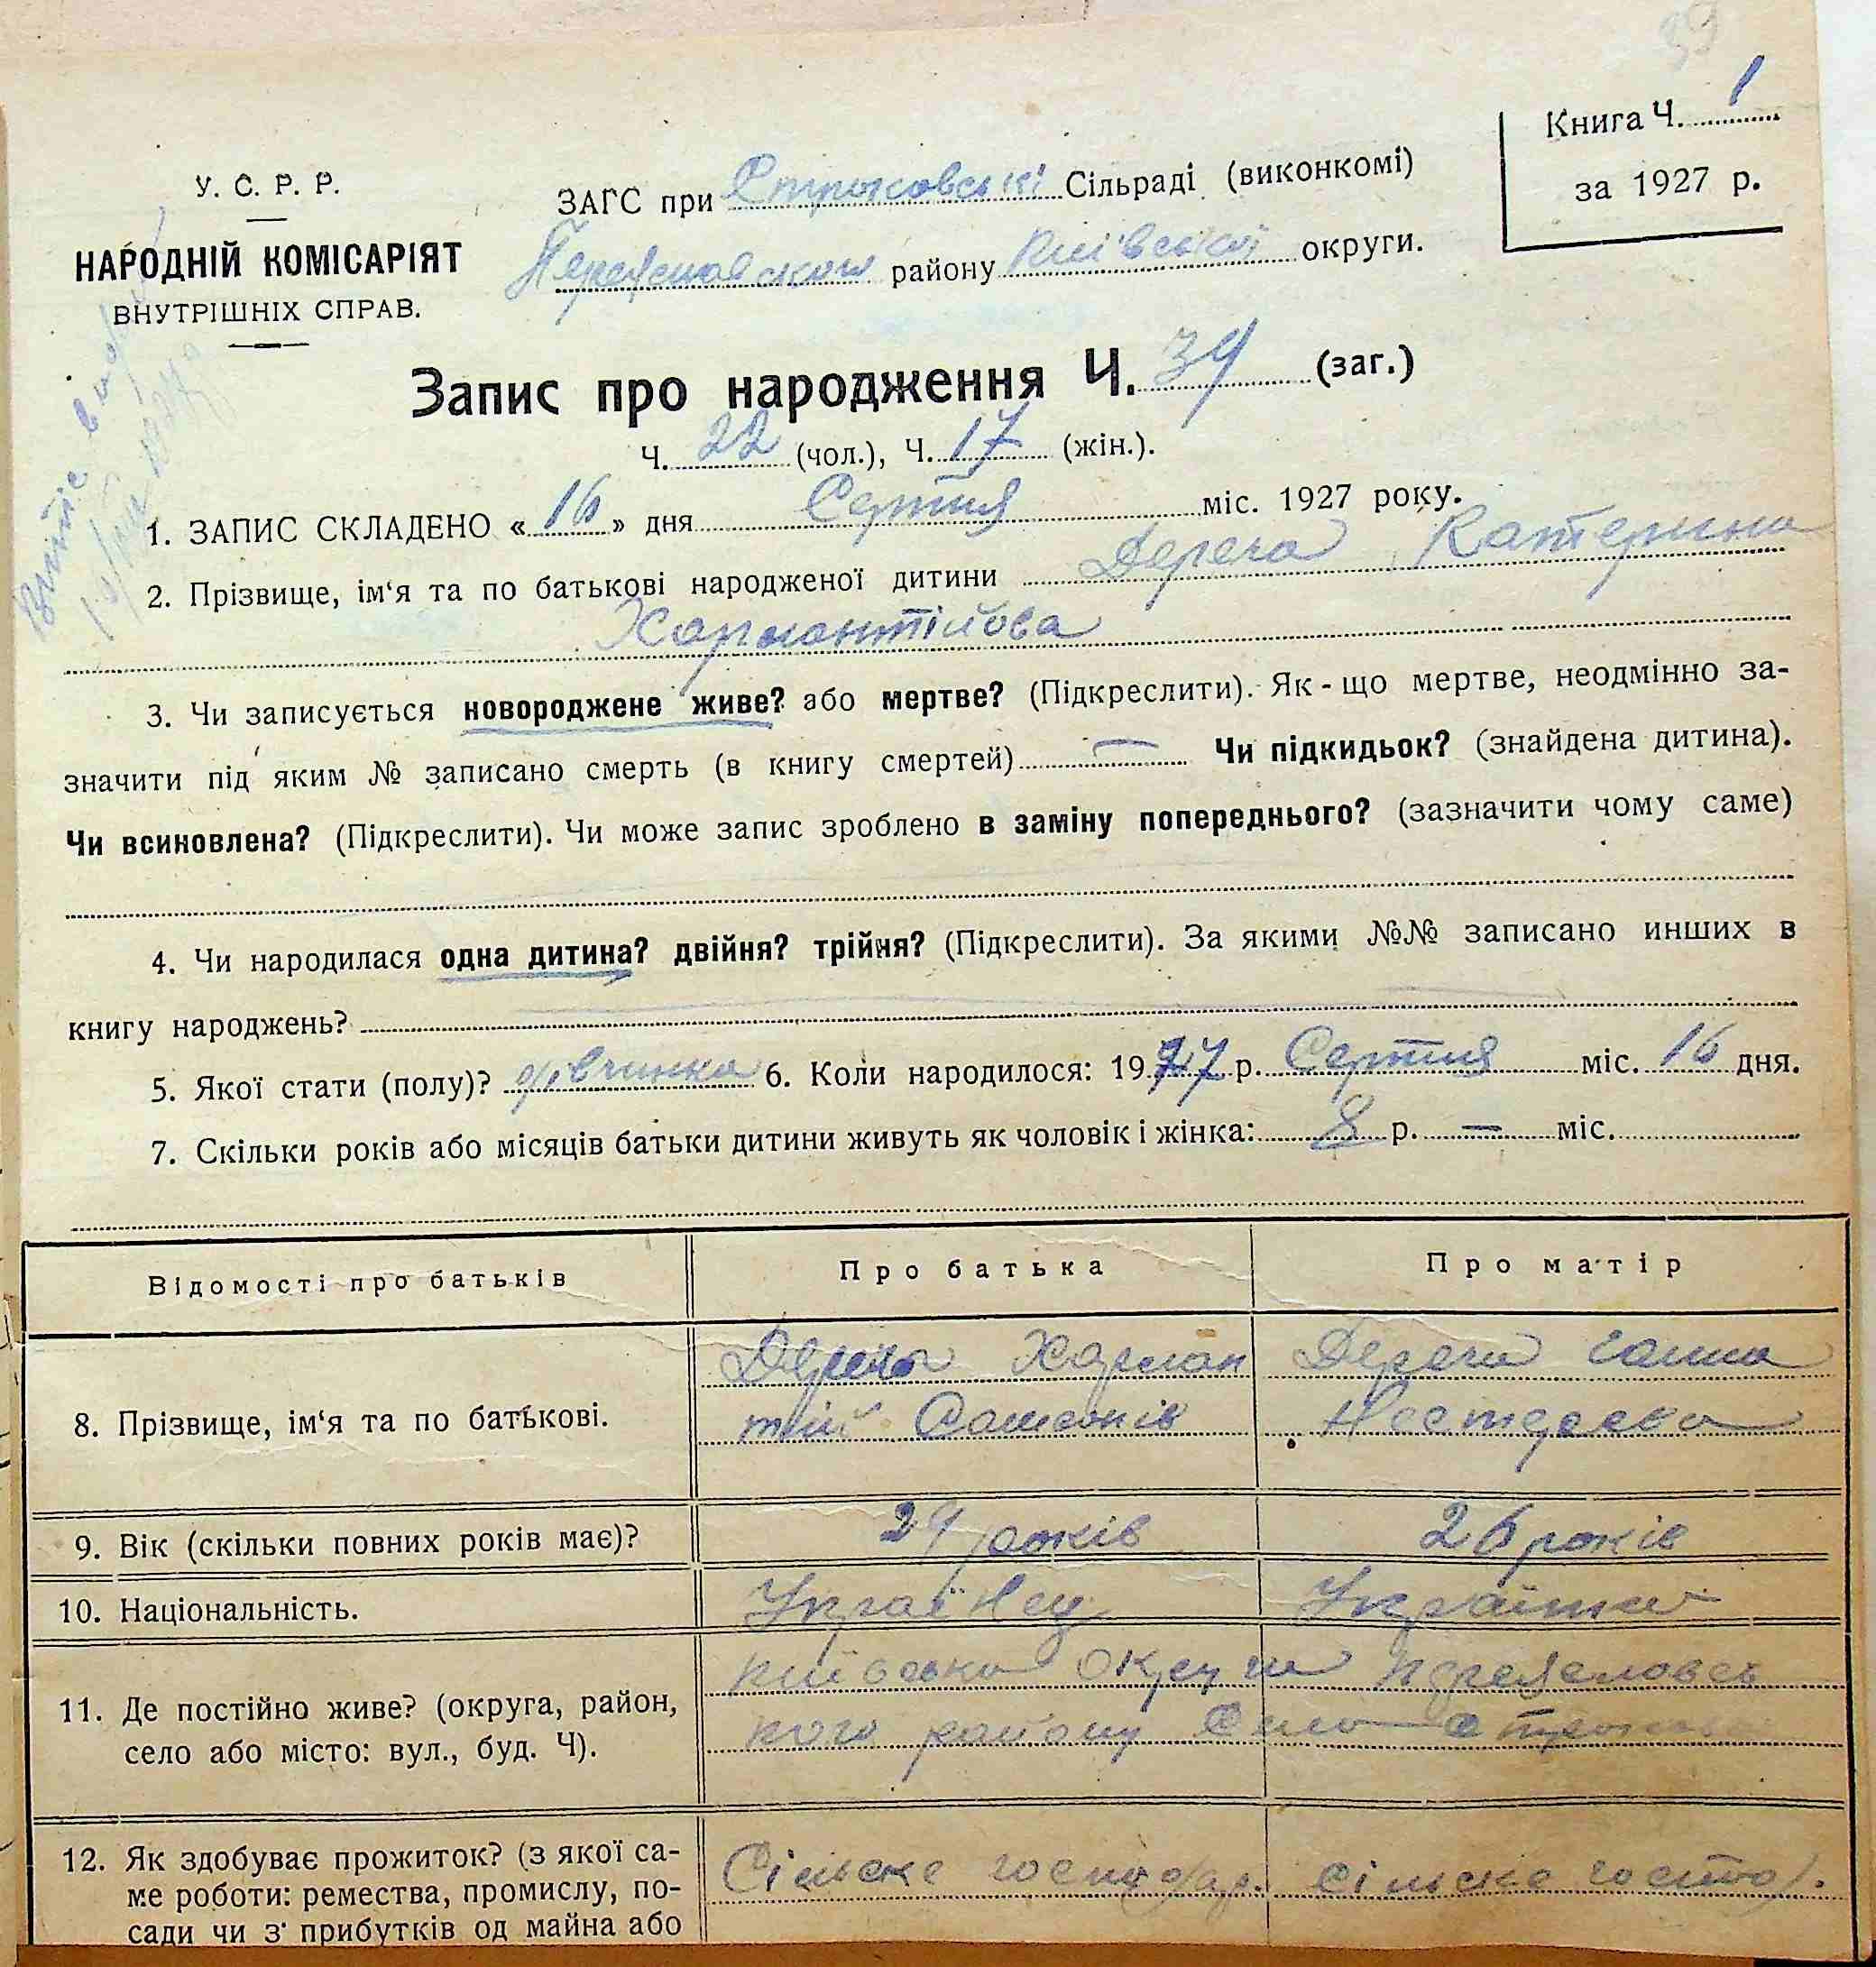 39
Книга Ч. 1
за 1927 р.
У. С. Р. Р.
НАРОДНІЙ КОМІСАРІЯТ
ВНУТРІШНІХ СПРАВ.
ЗАГС при Строковські Сільраді (виконкомі)
Переяславського району Київської округи.
Запис про народження Ч. 39 (заг.)
Ч. 22 (чол.), Ч. 17 (жін.).
1. ЗАПИС СКЛАДЕНО « 16 » дня Серпня міс. 1927 року.
2. Прізвище, ім‘я та по батькові народженої дитини Дереча Катерина
Харлантійова
3. Чи записується новороджене живе? або мертве? (Підкреслити). Як-що мертве, неодмінно за-
значити під яким № записано смерть (в книгу смертей) — Чи підкидьок? (знайдена дитина).
Чи всиновлена? (Підкреслити). Чи може запис зроблено в заміну попереднього? (зазначити чому саме)
4. Чи народилася одна дитина? двійня? трійня? (Підкреслити). За якими №№ записано инших в
книгу народжень?
5. Якої стати (полу)? дівчинка 6. Коли народилося: 1927 р. Серпня міс. 16 дня.
7. Скільки років або місяців батьки дитини живуть як чоловік і жінка: 8 р. — міс.
Відомості про батьків Про батька Про матір
8. Прізвище, ім‘я та по батькові.
Дереча Харлан
тій Самсонів
Дереча Ганна
Нестерова
9. Вік (скільки повних років має)? 29 років 26 років
10. Національність. Українец Українка
11. Де постійно живе? (округа, район,
село або місто: вул., буд. Ч).
Київська округи Переяславсь
кого району Село
12. Як здобуває прожиток? (з якої са-
ме роботи: ремества, промислу, по-
сади чи з прибутків од майна або
Сільске господар. сільске господ.